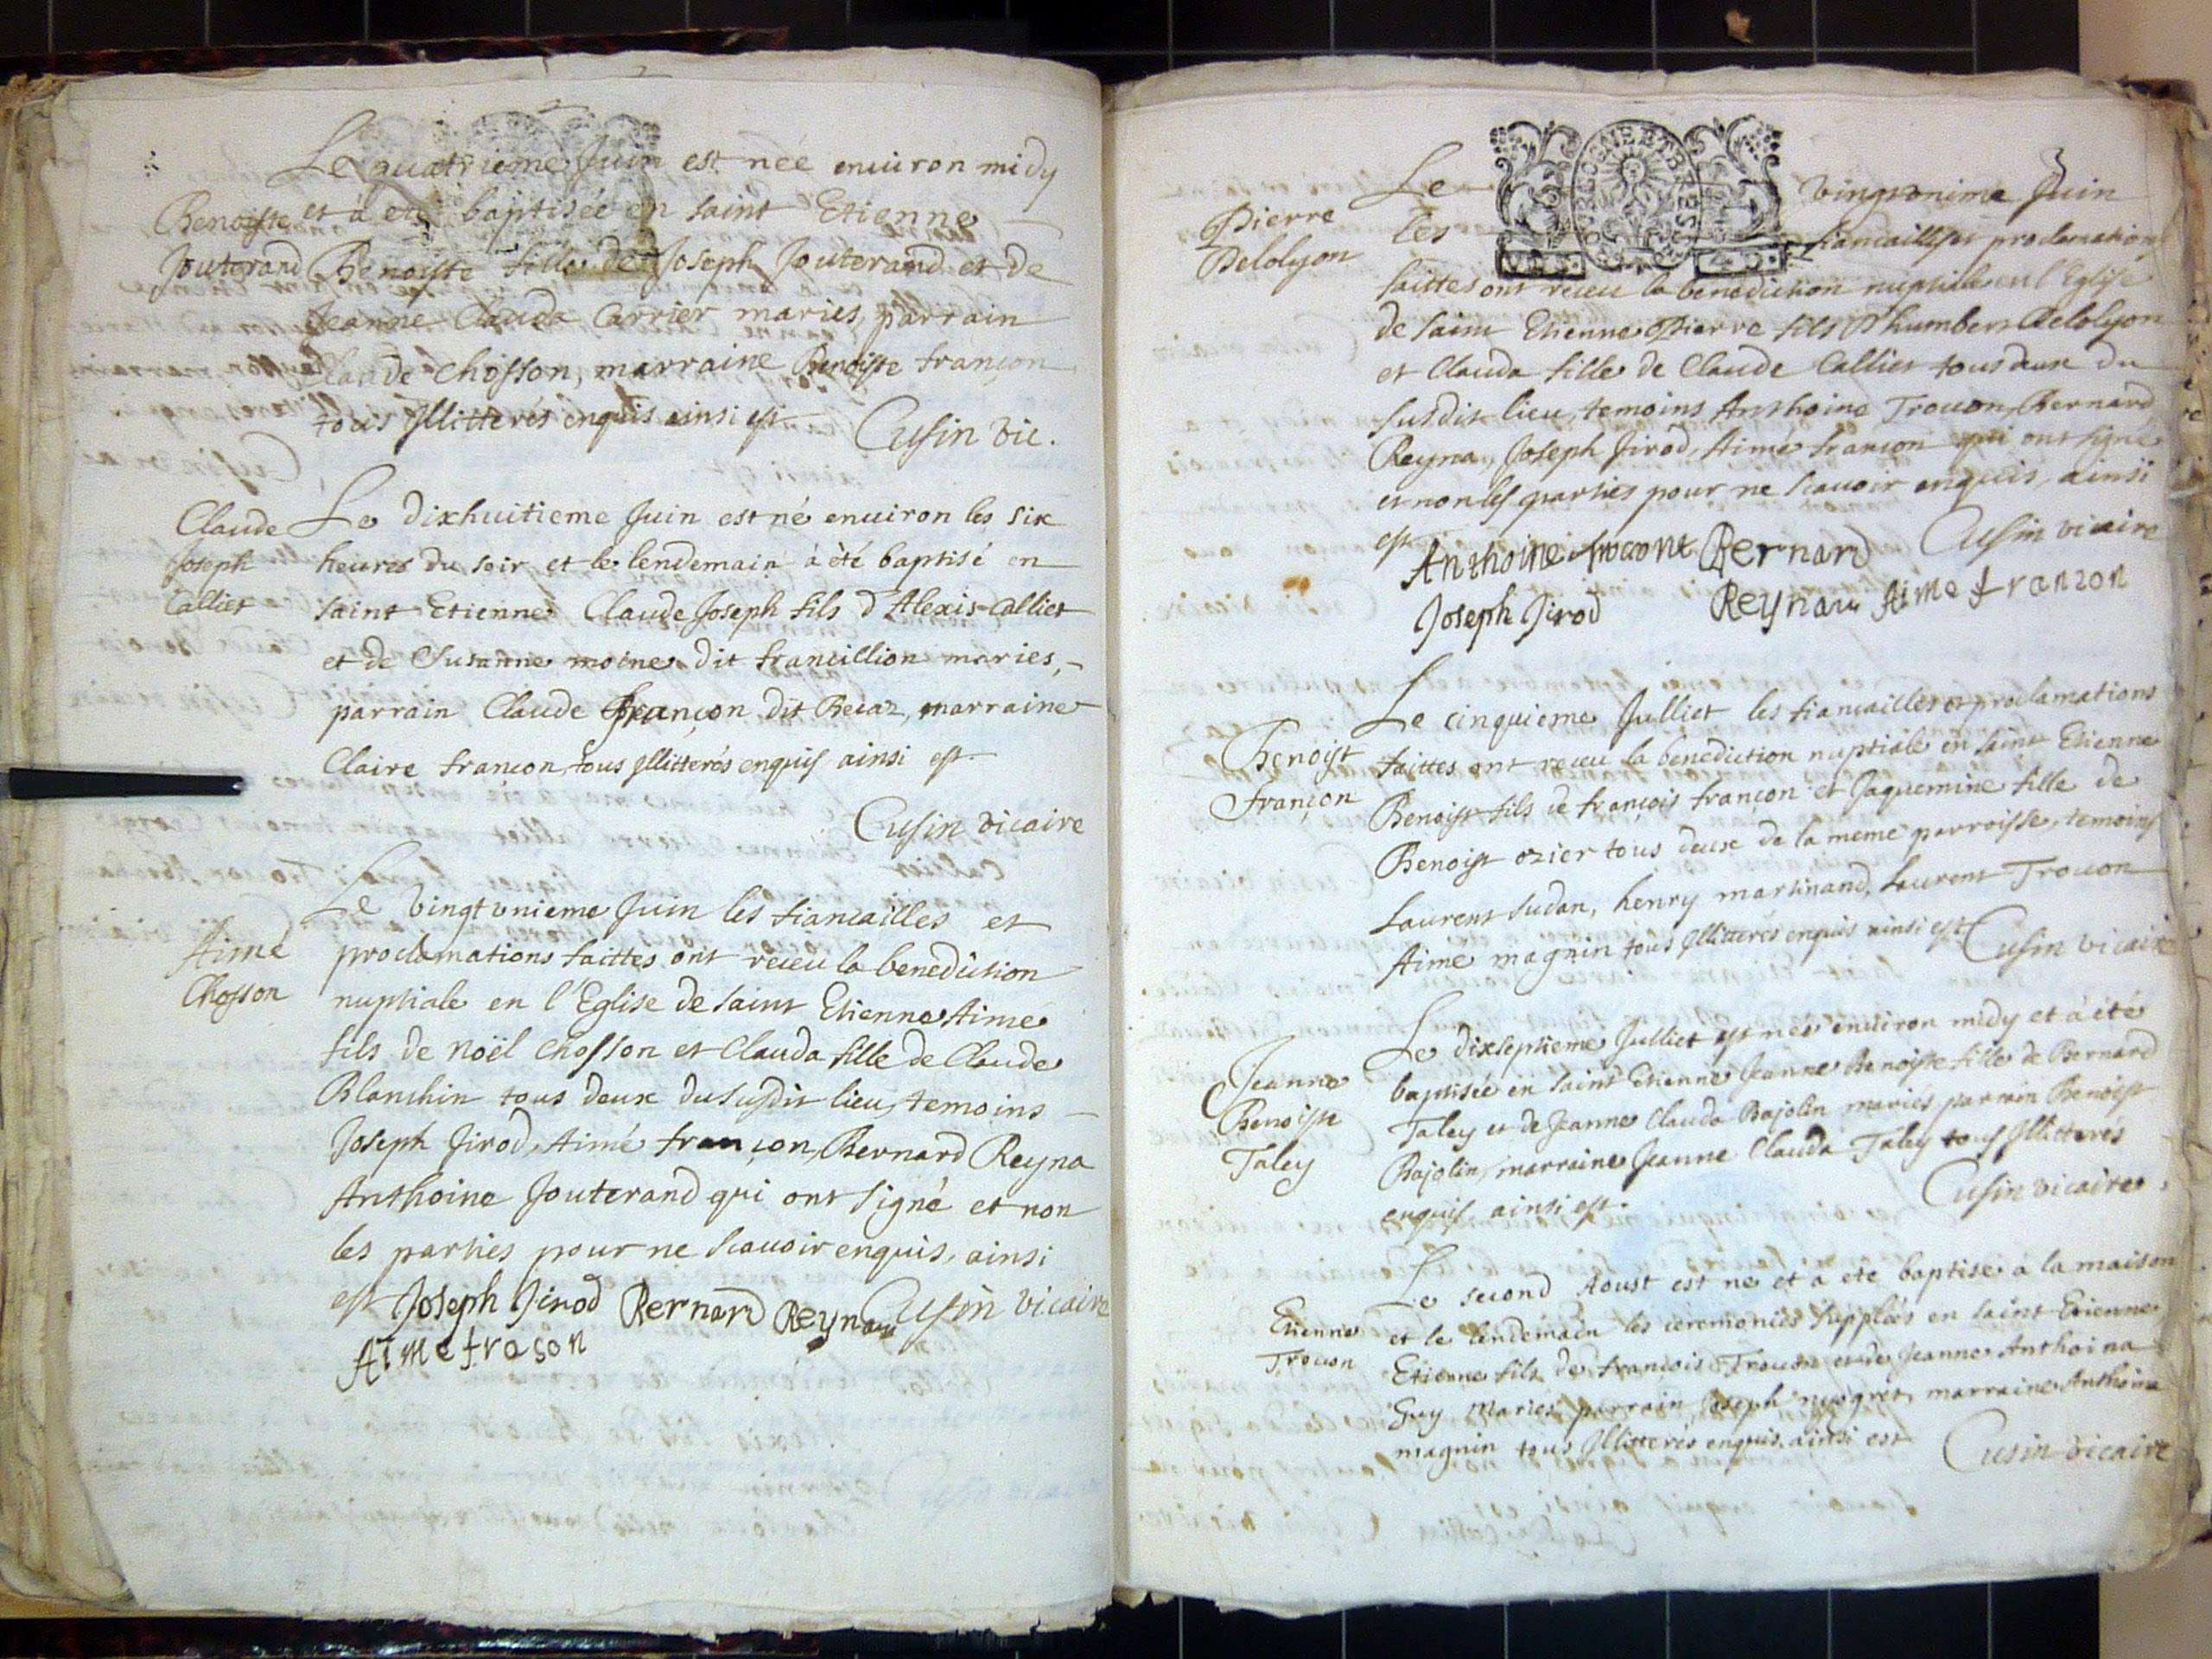 Le quatrieme Juin est née enuiron midy
Benoiste et à eté baptisée en saint Etienne
Jouterand Benoiste fille de Joseph Jouterand et de
Jeanne Clauda Carrier mariés, parrain
Claude Chosson, marraine Benoiste françon
tous Jllitterés enquis ainsi est Cusin vic.
Claude Le dixhuitieme Juin est né enuiron les six
Joseph heures du soir et le lendemain à été baptisé en
Calliet saint Etienne Claude Joseph fils d'Alexis Calliet
et de Susanne moine dit francillion maries,
parrain Claude françon dit Recaz, marraine
Claire francon, tous Jllitterés enquis ainsi est.
Cusin vicaire
Le vingt vnieme Juin les fiancailles et
Aimé proclamations faittes ont receu la benediction
Chosson nuptiale en l'Eglise de saint Etienne Aime
fils de Noël Chosson et Clauda fille de Claude
Blanchin tous deux du susdit lieu, temoins
Joseph Jirod, Aimé françon, Bernard Reyna
Anthoine Jouterand qui ont signé et non
les parties pour ne scauoir enquis, ainsi
est Joseph Jirod Bernard Reynau Cusin vicaire
Aime frason
3
Le vingtvnime Juin
Pierre les fiancailles et proclamations
Delolyon faittes ont receu la benediction nuptiale en l'Eglise
de saint Etienne Pierre fils d'humbert Delolyon
et Clauda fille de Claude Calliet tous deux du
susdit lieu, temoins Anthoine Trouon, Bernard
Reyna, Joseph Jirod, Aimé francon qui ont signé
et non les parties pour ne scauoir enquis, ainsi
est Cusin vicaire
Anthoine Bernard
Joseph Jirod Reynau Aime franzon
Le cinquieme Julliet les fiancailles et proclamations
Benoist faittes ont receu la benediction nuptiale en saint Etienne
françon Benoist fils de françois francon et Jaquemine fille de
Benoist ozier tous deux de la meme parroisse, temoins
Laurent sudan, henry martinand, Laurent Trouon
Aime magnin tous Jllitterés enquis ainsi est Cusin vicaire
Le dixseptieme Julliet est née enuiron midy et à été
Jeanne baptisée en saint Etienne Jeanne Benoiste fille de Bernard
Benoiste Taley et de Jeanne Clauda Bajolin mariés, parrain Benoist
Taley Bajolin, marraine Jeanne Clauda Taley tous Jllitterés
enquis ainsi est. Cusin vicaire
Le second Aoust est ne et a ete baptise a la maison
Etienne et le lendemain les ceremonies supplées en saint Etienne
Trouon Etienne fils de francois Trouon et de Jeanne Anthoina
Guy mariés, parrain Joseph marraine Anthoina
magnin tous Jllitterés enquis, ainsi est Cusin vicaire